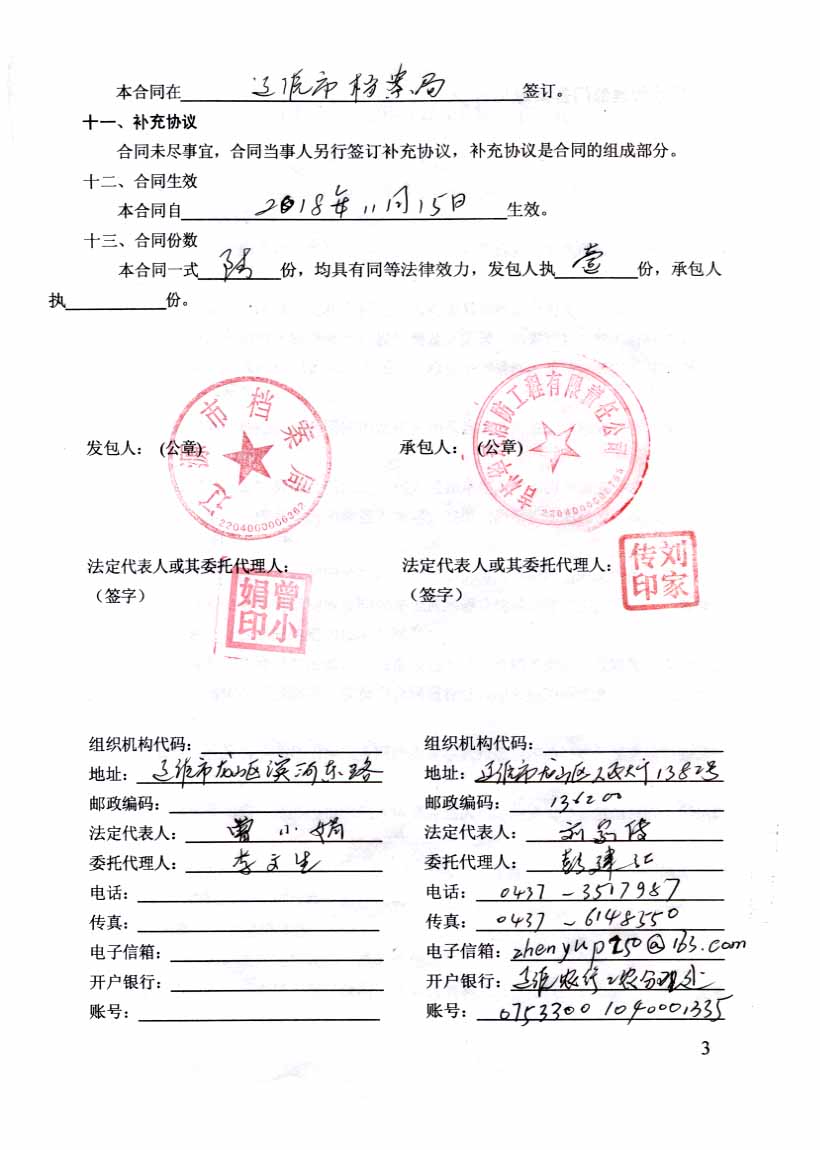 本合同在 辽源市档案局 签订。
十一、补充协议
合同未尽事宜，合同当事人另行签订补充协议，补充协议是合同的组成部分。
十二、合同生效
本合同自 2018年11月15日 生效。
十三、合同份数
本合同一式 陆 份，均具有同等法律效力，发包人执 壹 份，承包人
执 份。
辽源市档案局
2204000006362
发包人：(公章)
消防工程有限责任公司
承包人：(公章)
法定代表人或其委托代理人：
（签字）
曾小娟印
法定代表人或其委托代理人：
（签字）
刘家传印
组织机构代码：
地址：辽源市龙山区滨河东路
邮政编码：
法定代表人：曾小娟
委托代理人：李文生
电话：
传真：
电子信箱：
开户银行：
账号：
组织机构代码：
地址：辽源市龙山区人民大街1382号
邮政编码：136200
法定代表人：刘家传
委托代理人：彭建
电话：0437-3517987
传真：0437-6148550
电子信箱：zhenyup250@163.com
开户银行：辽源农行工农分理处
账号：0753300 1040001335
3